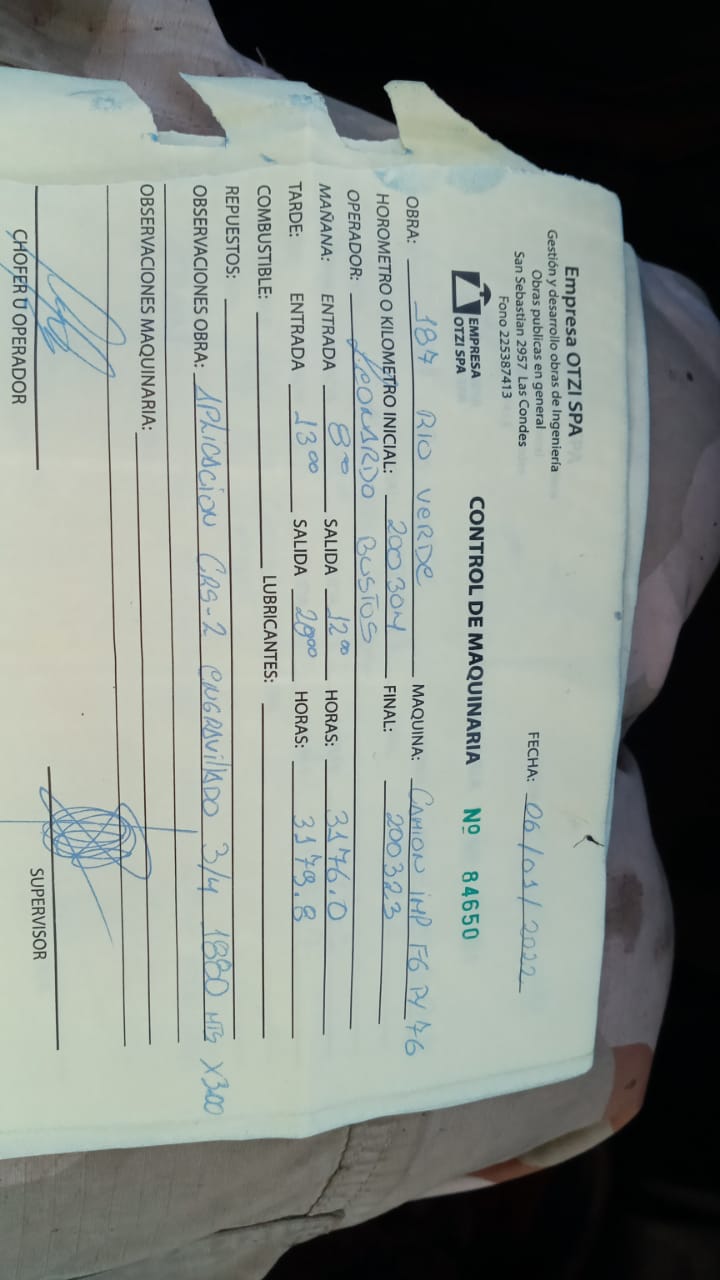 Empresa OTZI SPA
Gestión y desarrollo obras de Ingeniería
Obras publicas en general
San Sebastian 2957 Las Condes
Fono 225387413
EMPRESA
OTZI SPA
FECHA: 06/01/2022
CONTROL DE MAQUINARIA Nº 84650
OBRA: 187 RIO VERDE MAQUINA: CAMION IMP FG PY 76
HOROMETRO O KILOMETRO INICIAL: 200304 FINAL: 200323
OPERADOR: LEONARDO BUSTOS
MAÑANA: ENTRADA 8⁰⁰ SALIDA 12⁰⁰ HORAS: 3176.0
TARDE: ENTRADA 13⁰⁰ SALIDA 20⁰⁰ HORAS: 3179.8
COMBUSTIBLE: LUBRICANTES:
REPUESTOS:
OBSERVACIONES OBRA: APLICACION CRS-2 ENGRAVILLADO 3/4 1880 MTS X300
OBSERVACIONES MAQUINARIA:
CHOFER U OPERADOR SUPERVISOR